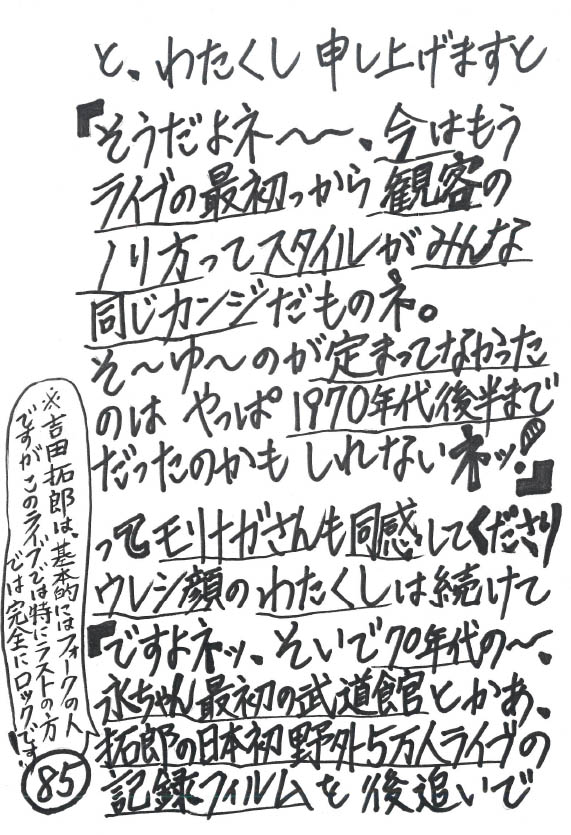 と、わたくし申し上げますと
『そうだよネ〜〜、今はもう
ライブの最初っから観客の
ノリ方ってスタイルがみんな
同じカンジだものネ。
そ〜ゆ〜のが定まってなかった
のは やっぱ1970年代後半まで
だったのかもしれないネッ!』
ってモリナガさんも同感してくださり
ウレシ顔のわたくしは続けて
『ですよネッ、そいで70年代の〜、
永ちゃん最初の武道館とかあ、
拓郎の日本初野外5万人ライブの
記録フィルムを後追いで
※吉田拓郎は、基本的にはフォークの人
ですがこのライブでは特にラストの方
では完全にロックです!
85